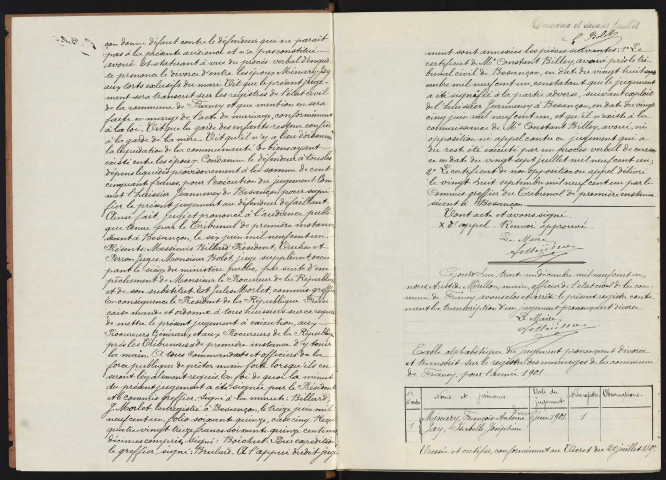 çon donne défaut contre le défendeur qui ne parait
pas à la présente audience et n'a pas constitué
avoué Et statuant à vu du procès verbal d'enquête
se prononce le divorce d'entre les époux
aux torts exclusifs du mari Dit que le présent juge-
ment sera transcrit sur les registres de l'état civil
de la commune de et que mention en sera
faite en marge de l'acte de mariage, conformément
à la loi. Dit que la garde des enfants restera confiée
à la garde de la mère. Dit qu'il n'y a lieu d'ordonner
la liquidation de la communauté de biens ayant
existé entre les époux. Condamne le défendeur à tous les
dépens liquidés provisoirement à la somme de cent
cinquante francs, pour l'exécution du jugement Com-
met l'huissier Jeanneney de Besançon pour signi-
fier le présent jugement au défendeur défaillant.
Ainsi fait, jugé et prononcé à l'audience publi-
que tenue par le Tribunal de première instance
séant à Besançon, le six juin mil neuf cent un.
Présents: Messieurs Billard Président, et
juges Monsieur Bolot, juge suppléant occu-
pant le siège du ministère public, par suite d'em-
pêchement de Monsieur le Procureur de la République
et de son substitut. Et Jules Morlot, commis greffier
En conséquence le Président de la République Fran-
çaise mande et ordonne à tous huissiers sur ce requis
de mettre le présent jugement à exécution, aux
Procureurs Généraux et aux Procureurs de la République
près les Tribunaux de première instance d'y tenir
la main. A tous Commandants et officiers de la
force publique de prêter main forte lorsqu'ils en
seront légalement requis. En foi de quoi la minute
du présent jugement a été signée par le Président
et le commis greffier. Signé à la minute: Billard,
J. Morlot. Enregistré à Besançon, le treize juin mil
neuf cent un, folio soixante quinze, case cinq. Reçu
quatre vingt treize francs soixante quinze centimes
décimes compris, signé: Boichut. Pour expédition
le greffier, signé: Brulard. A l'appui dudit juge-
ment sont annexées les pièces suivantes: 1° Le
certificat de Me Constant Billey, avoué près le tri-
bunal civil de Besançon, en date du vingt huit sept-
embre mil neuf cent un, constatant que le jugement
a été signifié à la partie adverse, suivant exploit
de l'huissier Jeanneney à Besançon, en date du vingt
cinq juin mil neuf cent un, et qu'il n'existe à la
connaissance de Me Constant Billey, avoué, ni
opposition ni appel contre ce jugement qui a
du reste été exécuté par un procès verbal de caren-
ce en date du vingt sept juillet mil neuf cent un;
2° Le certificat de non opposition ou appel délivré
le vingt huit septembre mil neuf cent un par le
Commis greffier du Tribunal de première instance
séant à Besançon.
Dont acte et avons signé
x d'appel. Renvoi approuvé.
Le Maire
Aujourd'hui, trente un décembre mil neuf cent un,
nous maire, officier de l'état civil de la com-
mune de avons clos et arrêté le présent registre conte-
nant la transcription d'un jugement prononçant divorce.
Le Maire,
Table alphabétique du jugement prononçant divorce
et transcrit sur le registre des mariages de la commune
de pour l'année 1901
Noms et prénoms Date du jugement Observations
1 François 6 juin 1901 1
Joséphine
Dressé et certifié, conformément au Décret du 20 juillet